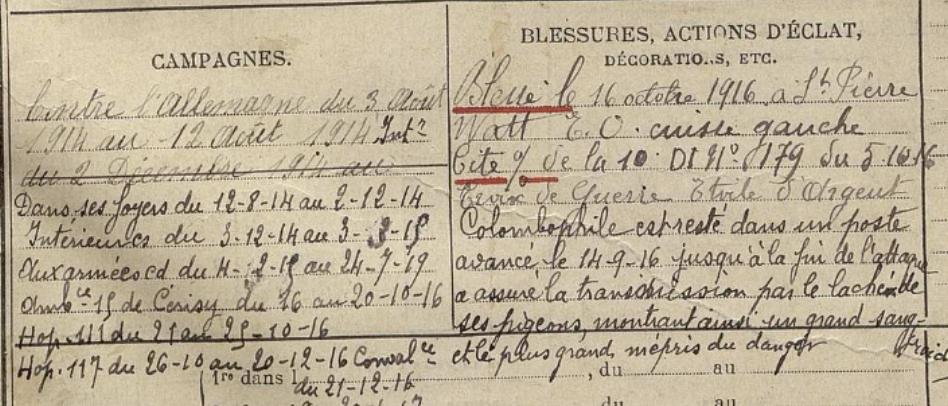 CAMPAGNES.
Contre l'Allemagne du 3 Août
1914 au 12 Août 1914 Intr
du 2 Décembre 1914 au
Dans ses foyers du 12-8-14 au 2-12-14
Intérieur cs du 3-12-14 au 3-3-15
Aux armées cd du 4-2-15 au 24-7-19
Ambce 15 de Cerisy du 16 au 20-10-16
Hop. 111 du 21 au 25-10-16
Hop. 117 du 26-10 au 20-12-16 Convalce
du 21-12-16
BLESSURES, ACTIONS D'ÉCLAT,
DÉCORATIONS, ETC.
Blessé le 16 octobre 1916 à St Pierre
Watt E.O. cuisse gauche
Cité % de la 10 DI No 179 du 5 10 16
Croix de Guerre Etoile d'Argent
Colombophile est resté dans un poste
avancé le 14-9-16 jusqu'à la fin de l'attaque
a assuré la transmission par le lâcher de
ses pigeons, montrant ainsi un grand sang-
froid
et le plus grand mépris du danger
1re dans l , du au
du au